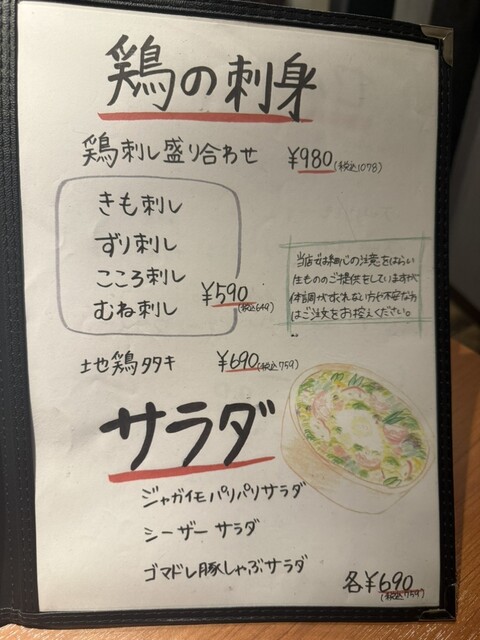 鶏の刺身
鶏刺し盛り合わせ ¥980(税込1078)
きも刺し
ずり刺し
こころ刺し
むね刺し
¥590(税込649)
当店では細心の注意をはらい
生もののご提供をしていますが
体調がすぐれない方や不安な方
はご注文をお控えください。
土地鶏タタキ ¥690(税込759)
サラダ
ジャガイモパリパリサラダ
シーザーサラダ
ゴマドレ豚しゃぶサラダ
各¥690
(税込759)